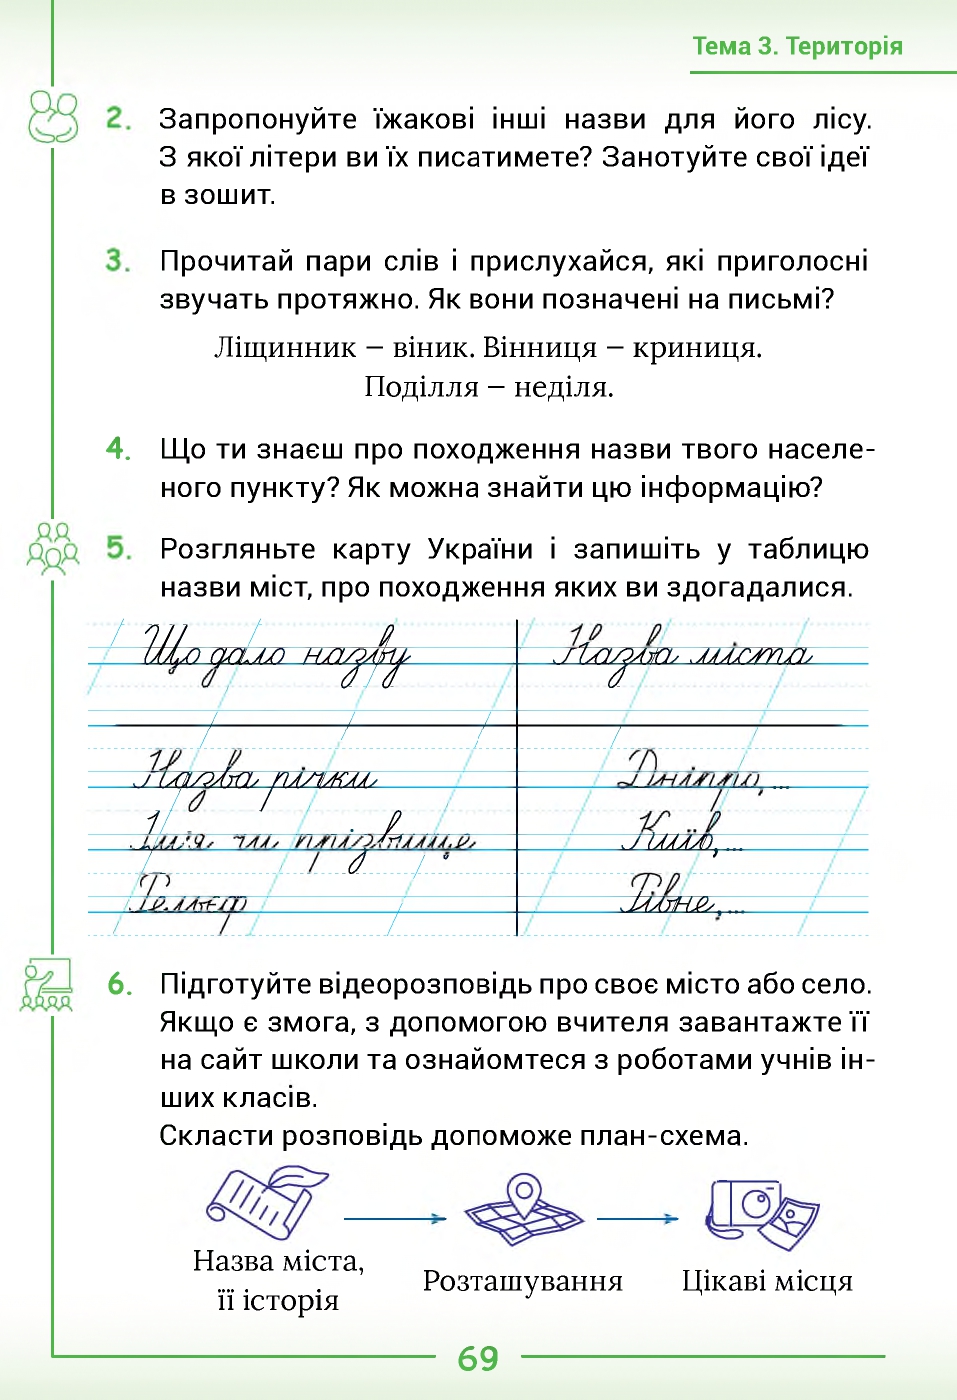 Тема 3. Територія
2. Запропонуйте їжакові інші назви для його лісу.
З якої літери ви їх писатимете? Занотуйте свої ідеї
в зошит.
3. Прочитай пари слів і прислухайся, які приголосні
звучать протяжно. Як вони позначені на письмі?
Ліщинник – віник. Вінниця – криниця.
Поділля – неділя.
4. Що ти знаєш про походження назви твого населе-
ного пункту? Як можна знайти цю інформацію?
5. Розгляньте карту України і запишіть у таблицю
назви міст, про походження яких ви здогадалися.
Що дало назву Назва міста
Назва річки Дніпро,...
Ім'я чи прізвище Київ,...
Рельєф Рівне,...
6. Підготуйте відеорозповідь про своє місто або село.
Якщо є змога, з допомогою вчителя завантажте її
на сайт школи та ознайомтеся з роботами учнів ін-
ших класів.
Скласти розповідь допоможе план-схема.
Назва міста,
її історія
Розташування
Цікаві місця
69